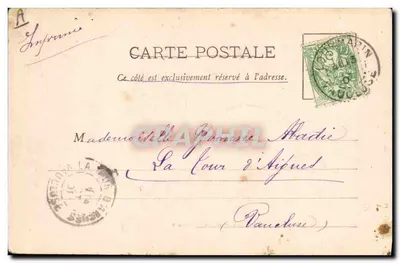 A
Imprimé
CARTE POSTALE
Ce côté est exclusivement réservé à l'adresse.
Mademoiselle Abadie
La Tour d'Aigues
Vaucluse